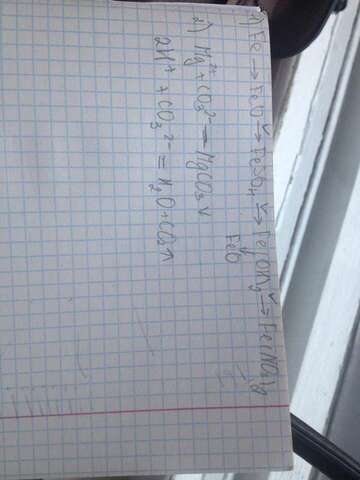 1) Fe → FeO → FeSO4 → Fe(OH)2 → Fe(NO3)2
FeO
2) Mg2+ + CO3 2- = MgCO3 ↓
2H+ + CO3 2- = H2O + CO2 ↑